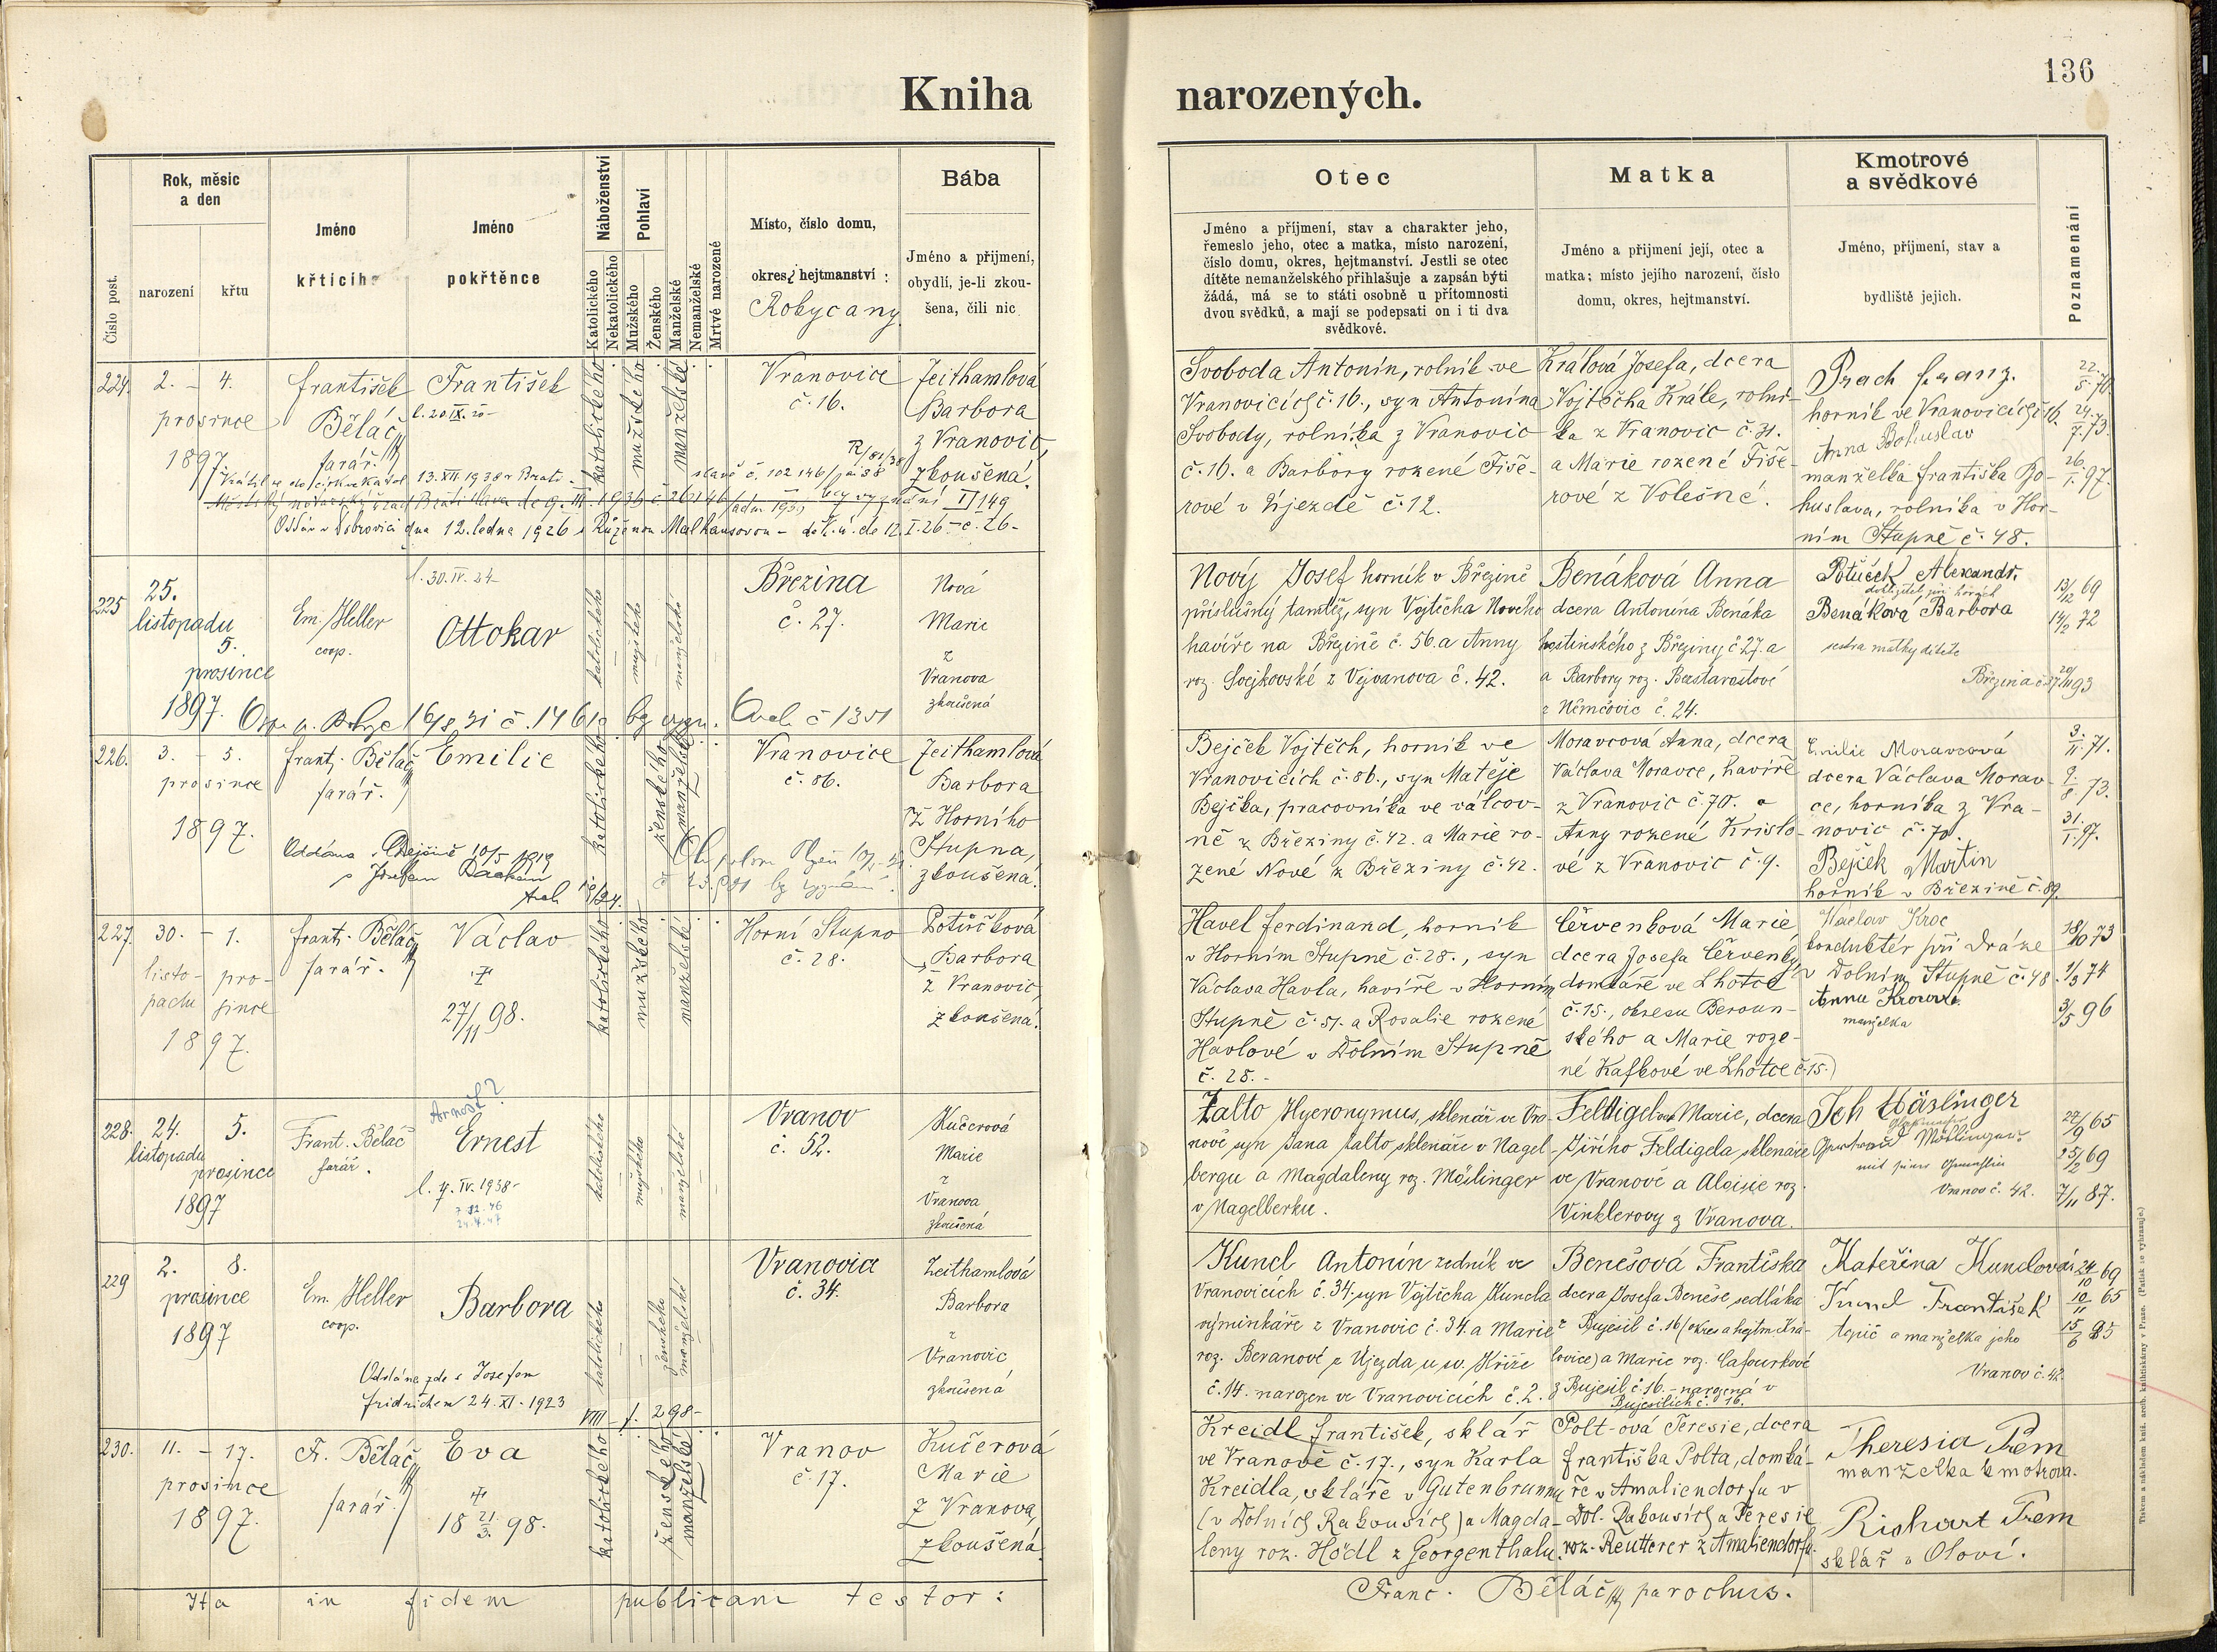 Kniha
narozených.
136
Číslo post.
Rok, měsíc
a den
narození
křtu
Jméno
křtícího
Jméno
pokřtěnce
Náboženství
Katolického
Nekatolického
Pohlaví
Mužského
Ženského
Manželské
Nemanželské
Mrtvé narozené
Místo, číslo domu,
okres, hejtmanství :
Rokycany
Bába
Jméno a přijmení,
obydlí, je-li zkou-
šena, čili nic
Otec
Jméno a příjmení, stav a charakter jeho,
řemeslo jeho, otec a matka, místo narození,
číslo domu, okres, hejtmanství. Jestli se otec
dítěte nemanželského přihlašuje a zapsán býti
žádá, má se to státi osobně u přítomnosti
dvou svědků, a mají se podepsati on i ti dva
svědkové.
Matka
Jméno a přijmení její, otec a
matka; místo jejího narození, číslo
domu, okres, hejtmanství.
Kmotrové
a svědkové
Jméno, příjmení, stav a
bydliště jejich.
Poznamenání
224.
2. – 4.
prosince
1897.
František
Běláč
farář.
František
l. 20 IX. 20-
katolického
mužského
manželské
Vranovice
č. 16.
Zeithamlová
Barbora
z Vranovic,
zkoušená.
13.XII 1938 v Brati-
slavě č. 102146
Oddán v Dobrovici dne 12. ledna 1926 s Růženou Malhausovou - de 12.I.26 - č. 26-
Svoboda Antonín, rolník ve
Vranovicích č. 16., syn Antonína
Svobody, rolníka z Vranovic
č. 16. a Barbory rozené Fiše-
rové v Újezdě č. 12.
Králová Josefa, dcera
Vojtěcha Krále, rolní-
ka z Vranovic č. 31.
a Marie rozené Fiše-
rové z Volešné.
Prach Franz.
horník ve Vranovicích č. 16.
Anna Bohuslav
manželka Františka Bo-
huslava, rolníka v Hor-
ním Stupně č. 48.
22.
5. 70.
24.
7. 73.
26.
1. 97.
225
25.
listopadu
5.
prosince
1897.
Em. Heller
coop.
l. 30. IV. 24-
Ottokar
katolického
mužského
manželské
Březina
č. 27.
Nová
Marie
z
Vranova
zkoušená
Nový Josef horník v Březině
příslušný tamtéž, syn Vojtěcha Nového
havíře na Březině č. 56. a Anny
roz. Svejkovské z Vejvanova č. 42.
Benáková Anna
dcera Antonína Benáka
hostinského z Březiny č. 27. a
a Barbory roz.
z Němčovic č. 24.
Potůček Alexandr.
Benáková Barbora
sestra matky dítěte
13/12 69
14/2 72
226.
3. – 5.
prosince
1897.
Frant. Běláč
farář.
Emilie
katolického
ženského
manželské
Vranovice
č. 86.
Zeithamlová
Barbora
z Horního
Stupna,
zkoušená.
Oddána v Chejšině 10/5 1919
s Josefem
Bejček Vojtěch, horník ve
Vranovicích č. 86., syn Matěje
Bejčka, pracovníka ve válcov-
ně z Březiny č. 42. a Marie ro-
zené Nové z Březiny č. 42.
Moravcová Anna, dcera
Václava Moravce, havíře
z Vranovic č. 70. a
Anny rozené Kristo-
vé z Vranovic č. 9.
Emilie Moravcová
dcera Václava Morav-
ce, horníka z Vra-
novic č. 70.
Bejček Martin
horník v Březině č. 89.
3.
11. 71.
9.
8. 73.
31.
1. 97.
227.
30. – 1.
listo- pro-
padu since
1897.
Frant. Běláč
farář.
Václav
27/11 98.
katolického
mužského
manželské
Horní Stupno
č. 28.
Potůčková
Barbora
z Vranovic,
zkoušená.
Havel Ferdinand, horník
v Horním Stupně č. 28., syn
Václava Havla, havíře v Horním
Stupně č. 51. a Rosalie rozené
Havlové v Dolním Stupně
č. 25.-
Červenková Marie,
dcera Josefa Červenky,
domkáře ve Lhotce
č. 15., okresu Beroun-
ského a Marie roze-
né Kafkové ve Lhotce č. 15.)
Václav Kroc
konduktér při dráze
v Dolním Stupně č. 48.
Anna Krocová
manželka
18/10 73
1/3 74
3/5 96
228.
24.
listopadu
5.
prosince
1897
Frant. Běláč
farář.
Arnošt?
Ernest
l. 4. IV. 1938-
katolického
mužského
manželské
Vranov
č. 52.
Kučerová
Marie
z
Vranova
zkoušená
Zalto Hyeronymus, sklenář ve Vra-
nově syn Jana Zalto sklenáře v Nagel-
bergu a Magdaleny roz. Möslinger
v Nagelberku.
Feldigelova Marie, dcera
Jiřího Feldigela sklenáře
ve Vranově a Aloisie roz.
Vinklerovy z Vranova.
Joh Häslinger
Gertraud Möslinger
Vranov č. 42.
27/9 65
25/2 69
7/11 87.
229
2. 8.
prosince
1897
Em. Heller
coop.
Barbora
katolického
ženského
manželské
Vranovice
č. 34.
Zeithamlová
Barbora
z
Vranovic
zkoušená
Oddána zde s Josefem
Fridrichem 24. XI. 1923
VIII – f. 298-
Kuncl Antonín zedník ve
Vranovicích č. 34. syn Vojtěcha Kuncla
výminkáře z Vranovic č. 34. a Marie
roz. Beranové z Újezda u sv. Kříže
č. 14. narozen ve Vranovicích č. 2.
Benešová Františka
dcera Josefa Beneše sedláka
z Bujesil č. 16 (okres a hejtm. Kra-
lovice) a Marie roz. Cafourkové
z Bujesil č. 16. - narozená v
Bujesilích č. 16.
Kateřina Kunclová
Kuncl František
topič a manželka jeho
Vranov č. 42.
24/10 69
10/11 65
15/6 95
230.
11. – 17.
prosince
1897.
F. Běláč
farář.
Eva
18 21/3. 98.
katolického
ženského
manželské
Vranov
č. 17.
Kučerová
Marie
z Vranova,
zkoušená.
Kreidl František, sklář
ve Vranově č. 17., syn Karla
Kreidla, skláře v Gutenbrunnu
(v Dolních Rakousích) a Magda-
leny roz. Hödl z Georgenthalu.
Polt-ová Teresie, dcera
Františka Polta, domká-
ře v Amaliendorfu v
Dol. Rakousích a Teresie
roz. Reutterer z Amaliendorfu.
Theresia Prem
manželka kmotrova.
Richart Prem
sklář v Oloví.
Ita in fidem publicam testor:
Franc. Běláč parochus.
Tiskem a nákladem kníž. arcib. knihtiskárny v Praze. (Patisk se vyhrazuje.)